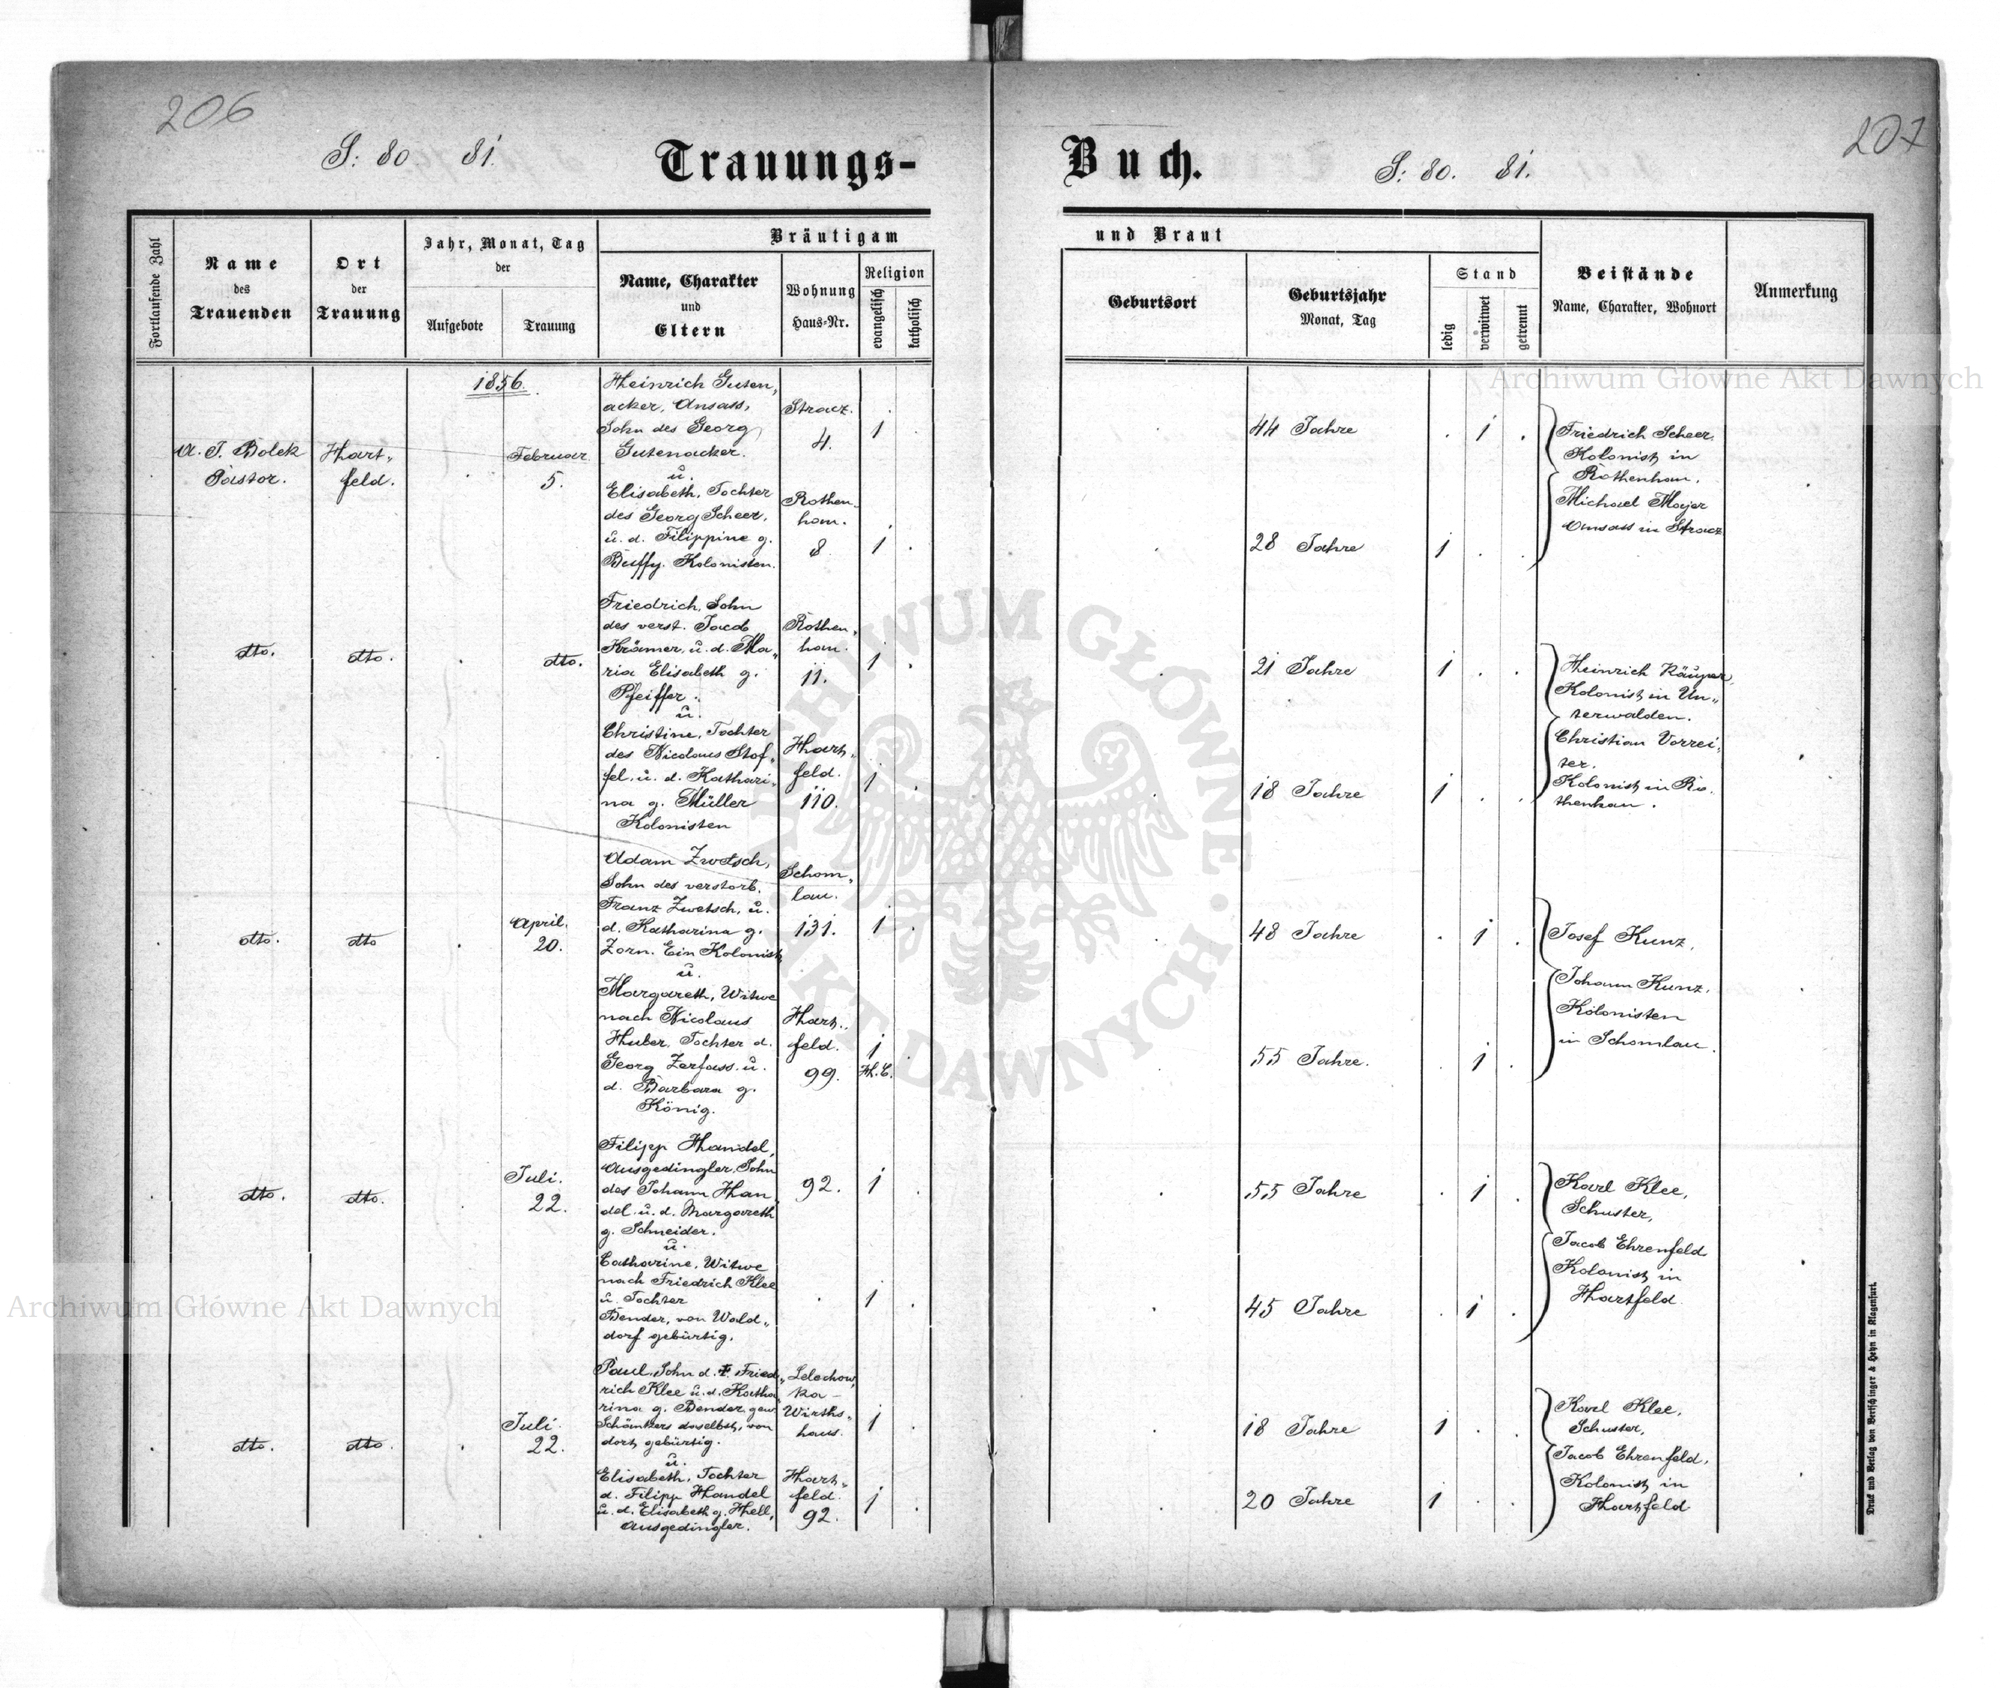 206
S: 80 81.
Trauungs-
Buch.
S: 80. 81.
207
Fortlaufende Zahl
Name
des
Trauenden
Ort
der
Trauung
Jahr, Monat, Tag
der
Aufgebote
Trauung
Bräutigam
Name, Charakter
und
Eltern
Wohnung
Haus-Nr.
Religion
evangelisch
katholisch
und Braut
Geburtsort
Geburtsjahr
Monat, Tag
Stand
ledig
verwitwet
getrennt
Beistände
Name, Charakter, Wohnort
Anmerkung
1856.
A. J. Bolek
Pastor.
Hart-
feld.
Februar
5.
Heinrich Guten,
acker, Ansass,
Sohn des Georg
Gutenacker.
u.
Elisabeth, Tochter
des Georg Scheer,
u. d. Filippine g.
Buffy. Kolonisten.
Stracz.
4.
Rothen,
han.
8
1
1
44 Jahre
1
28 Jahre
1
Friedrich Scheer.
Kolonist in
Rothenhan,
Michael Majer
Ansass in Stracz
dto.
dto.
dto.
Friedrich, Sohn
des verst. Jacob
Krämer, u. d. Ma„
ria Elisabeth g.
Pfeiffer.
u.
Christine, Tochter
des Nicolaus Stof„
fel, u. d. Kathari„
na g. Müller
Kolonisten
Rothen„
han.
11.
Hart,
feld.
110.
1
1
21 Jahre
1
18 Jahre
1
Heinrich Käuper,
Kolonist in Un„
terwalden.
Christian Vorrei,
ter.
Kolonist in Ro,
thenhan.
dto.
dto
April.
20.
Adam Zwetsch,
Sohn des verstorb.
Franz Zwetsch, u.
d. Katharina g.
Zorn. Ein Kolonist,
u.
Margareth, Witwe
nach Nicolaus
Huber, Tochter d.
Georg Zerfass. u.
d. Barbara g.
König.
Schom„
lau.
131.
Hart„
feld.
99.
1
1
H. C.
48 Jahre
1
55 Jahre.
1
Josef Kunz,
Johann Kunz,
Kolonisten
in Schomlau.
dto.
dto.
Juli.
22.
Filipp Handel,
Ausgedingler, Sohn
des Johann Han„
del. u. d. Margareth
g. Schneider.
u.
Catharine, Witwe
nach Friedrich Klee
u. Tochter
Bender, von Wald„
dorf gebürtig.
92.
1
1
55 Jahre
1
45 Jahre
1
Karl Klee,
Schuster,
Jacob Ehrenfeld
Kolonist in
Hartfeld.
dto.
dto.
Juli.
22.
Paul, Sohn d. † Fried„
rich Klee u. d. Katha
rina g. Bender, gew.
Schänkers daselbst, von
dort gebürtig.
u.
Elisabeth, Tochter
d. Filipp Handel
u. d. Elisabeth g. Hell,
Ausgedingler.
Lelechow,
ka –
Wirths„
haus.
Hart„
feld.
92.
1
1
18 Jahre
1
20 Jahre
1
Karl Klee,
Schuster,
Jacob Ehrenfeld,
Kolonist in
Hartfeld
Druck und Verlag von Bertschinger & Heyn in Klagenfurt.
Archiwum Główne Akt Dawnych
ARCHIWUM GŁÓWNE · AKT DAWNYCH ·
Archiwum Główne Akt Dawnych